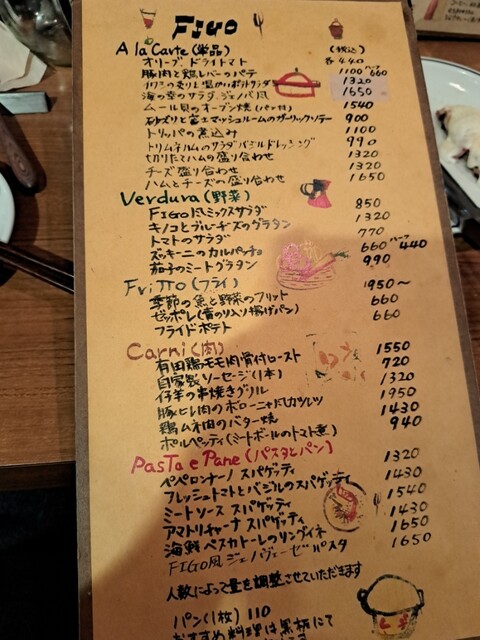 Figo
A la Carte (単品) (税込)
オリーブ ドライトマト 各440
豚肉と鶏レバーのパテ 1100 ハーフ660
温かいポテトサラダ 1320
海の幸のサラダ、ジェノバ風 1650
ムール貝のオーブン焼 (パン付) 1540
砂ズリと富士マッシュルームのガーリックソテー 900
トリッパの煮込み 1100
トリムネハムのサラダバジルドレッシング 990
切りたてハムの盛り合わせ 1320
チーズ盛り合わせ 1320
ハムとチーズの盛り合わせ 1650
Verdura (野菜)
FIGO風ミックスサラダ 850
キノコとブルーチーズのグラタン 1320
トマトのサラダ 770
ズッキーニのカルパッチョ 660 ハーフ440
茄子のミートグラタン 990
Fritto (フライ)
季節の魚と野菜のフリット 1950〜
ゼッポレ(青のり入り揚げパン) 660
フライドポテト 660
Carni (肉)
有田鶏モモ肉骨付ロースト 1550
自家製ソーセージ(1本) 720
仔羊の串焼きグリル 1320
豚ヒレ肉のボローニャ風カツレツ 1950
鶏ムネ肉のバター焼 1430
ポルペッティ(ミートボールのトマト煮) 940
Pasta e Pane (パスタとパン)
ペペロンチーノ スパゲッティ 1320
フレッシュトマトとバジルのスパゲッティ 1430
ミートソース スパゲッティ 1540
アマトリチャーナ スパゲッティ 1430
海鮮ペスカトーレのリングイネ 1650
FIGO風ジェノヴェーゼパスタ 1650
人数によって量を調整させていただきます
パン(1枚) 110
おすすめ料理は黒板にて